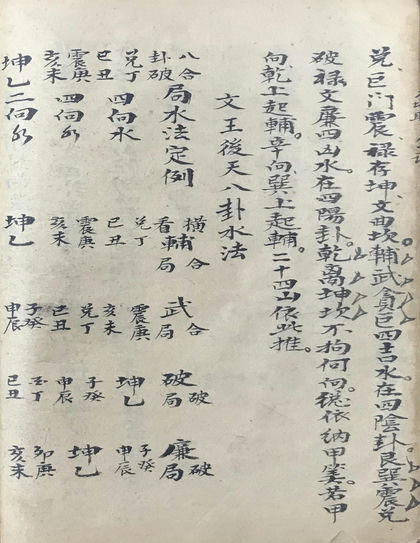 兑巨门震禄存坤文曲坎輔武貪巨四吉水在四陰卦艮巽震兑
破禄文廉四凶水在四陽卦乾离坤坎不拘何向總依納甲装若甲
向乾上起輔辛向巽上起輔二十四山依此推
文王後天八卦水法
八合卦破局水法定例 橫合看輔局 武合局 破破局 廉破局
兑丁巳丑四向水 兑丁巳丑 震庚亥未 子癸申辰
震庚亥未四向水 震庚亥未 兑丁巳丑 坤乙 坤乙
坤乙二向水 坤乙 子癸申辰 巳丑 卯庚亥未